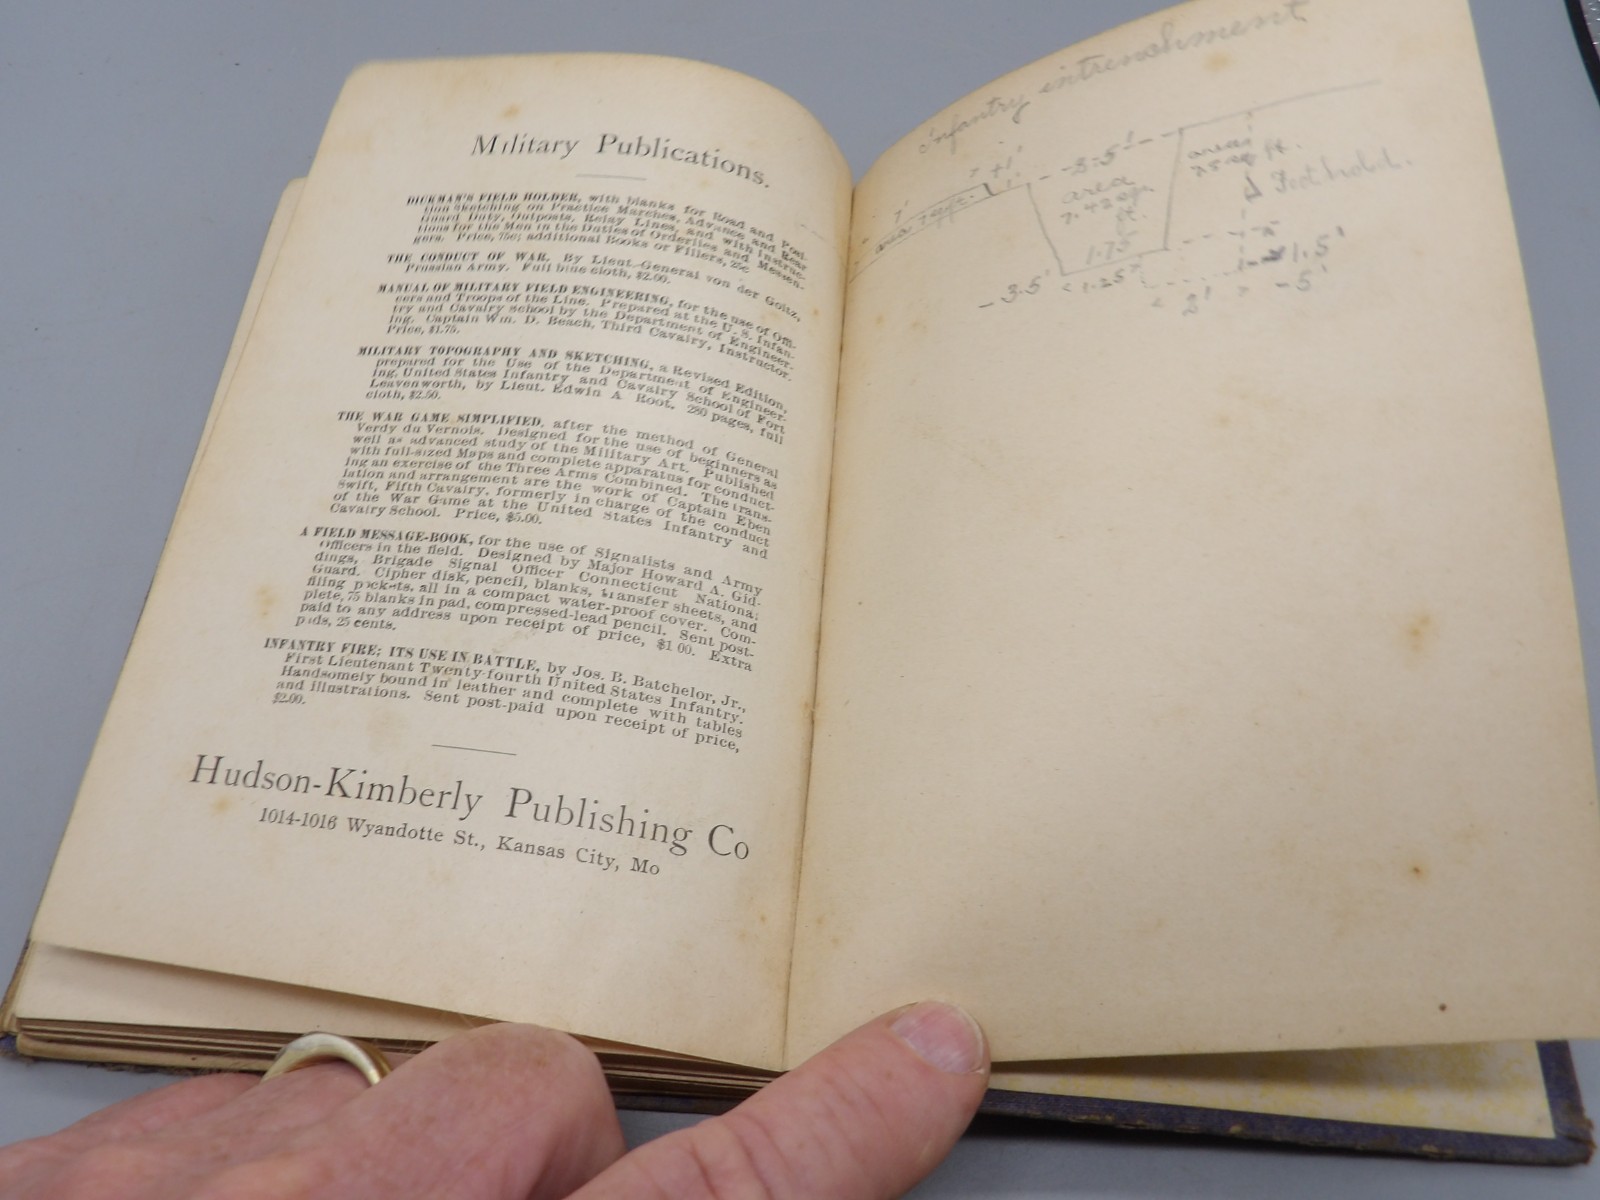 Military Publications.
DICKMAN'S FIELD HOLDER, with blanks for Road and Posi-
tion Sketching on Practice Marches, Advance and Rear
Guard Duty, Outposts, Relay Lines, and with instruc-
tions for the Men in the Duties of Orderlies and Messen-
gers. Price, 75c; additional Books or Fillers, 25c
THE CONDUCT OF WAR. By Lieut.-General von der Goltz,
Prussian Army. Full blue cloth, $2.00.
MANUAL OF MILITARY FIELD ENGINEERING, for the use of Offi-
cers and Troops of the Line. Prepared at the U. S. Infan-
try and Cavalry School by the Department of Engineer-
ing. Captain Wm. D. Beach, Third Cavalry, Instructor.
Price, $1.75.
MILITARY TOPOGRAPHY AND SKETCHING, a Revised Edition,
prepared for the Use of the Department of Engineer-
ing, United States Infantry and Cavalry School of Fort
Leavenworth, by Lieut. Edwin A Root. 280 pages, full
cloth, $2.50.
THE WAR GAME SIMPLIFIED, after the method of General
Verdy du Vernois. Designed for the use of beginners as
well as advanced study of the Military Art. Published
with full-sized Maps and complete apparatus for conduct-
ing an exercise of the Three Arms Combined. The trans-
lation and arrangement are the work of Captain Eben
Swift, Fifth Cavalry, formerly in charge of the conduct
of the War Game at the United States Infantry and
Cavalry School. Price, $5.00.
A FIELD MESSAGE-BOOK, for the use of Signalists and Army
Officers in the field. Designed by Major Howard A. Gid-
dings, Brigade Signal Officer Connecticut National
Guard. Cipher disk, pencil, blanks, transfer sheets, and
filing pockets, all in a compact water-proof cover. Com-
plete, 75 blanks in pad, compressed-lead pencil. Sent post-
paid to any address upon receipt of price, $1 00. Extra
pads, 25 cents.
INFANTRY FIRE; ITS USE IN BATTLE, by Jos. B. Batchelor, Jr.,
First Lieutenant Twenty-fourth United States Infantry.
Handsomely bound in leather and complete with tables
and illustrations. Sent post-paid upon receipt of price,
$2.00.
Hudson-Kimberly Publishing Co
1014-1016 Wyandotte St., Kansas City, Mo
Infantry intrenchment
+1'
-3.5'-
7'
area
area
7.42 sq.
ft.
area
sq ft.
Foothold.
1.75
1.5'
-3.5'
<1.25'
2'
-5'